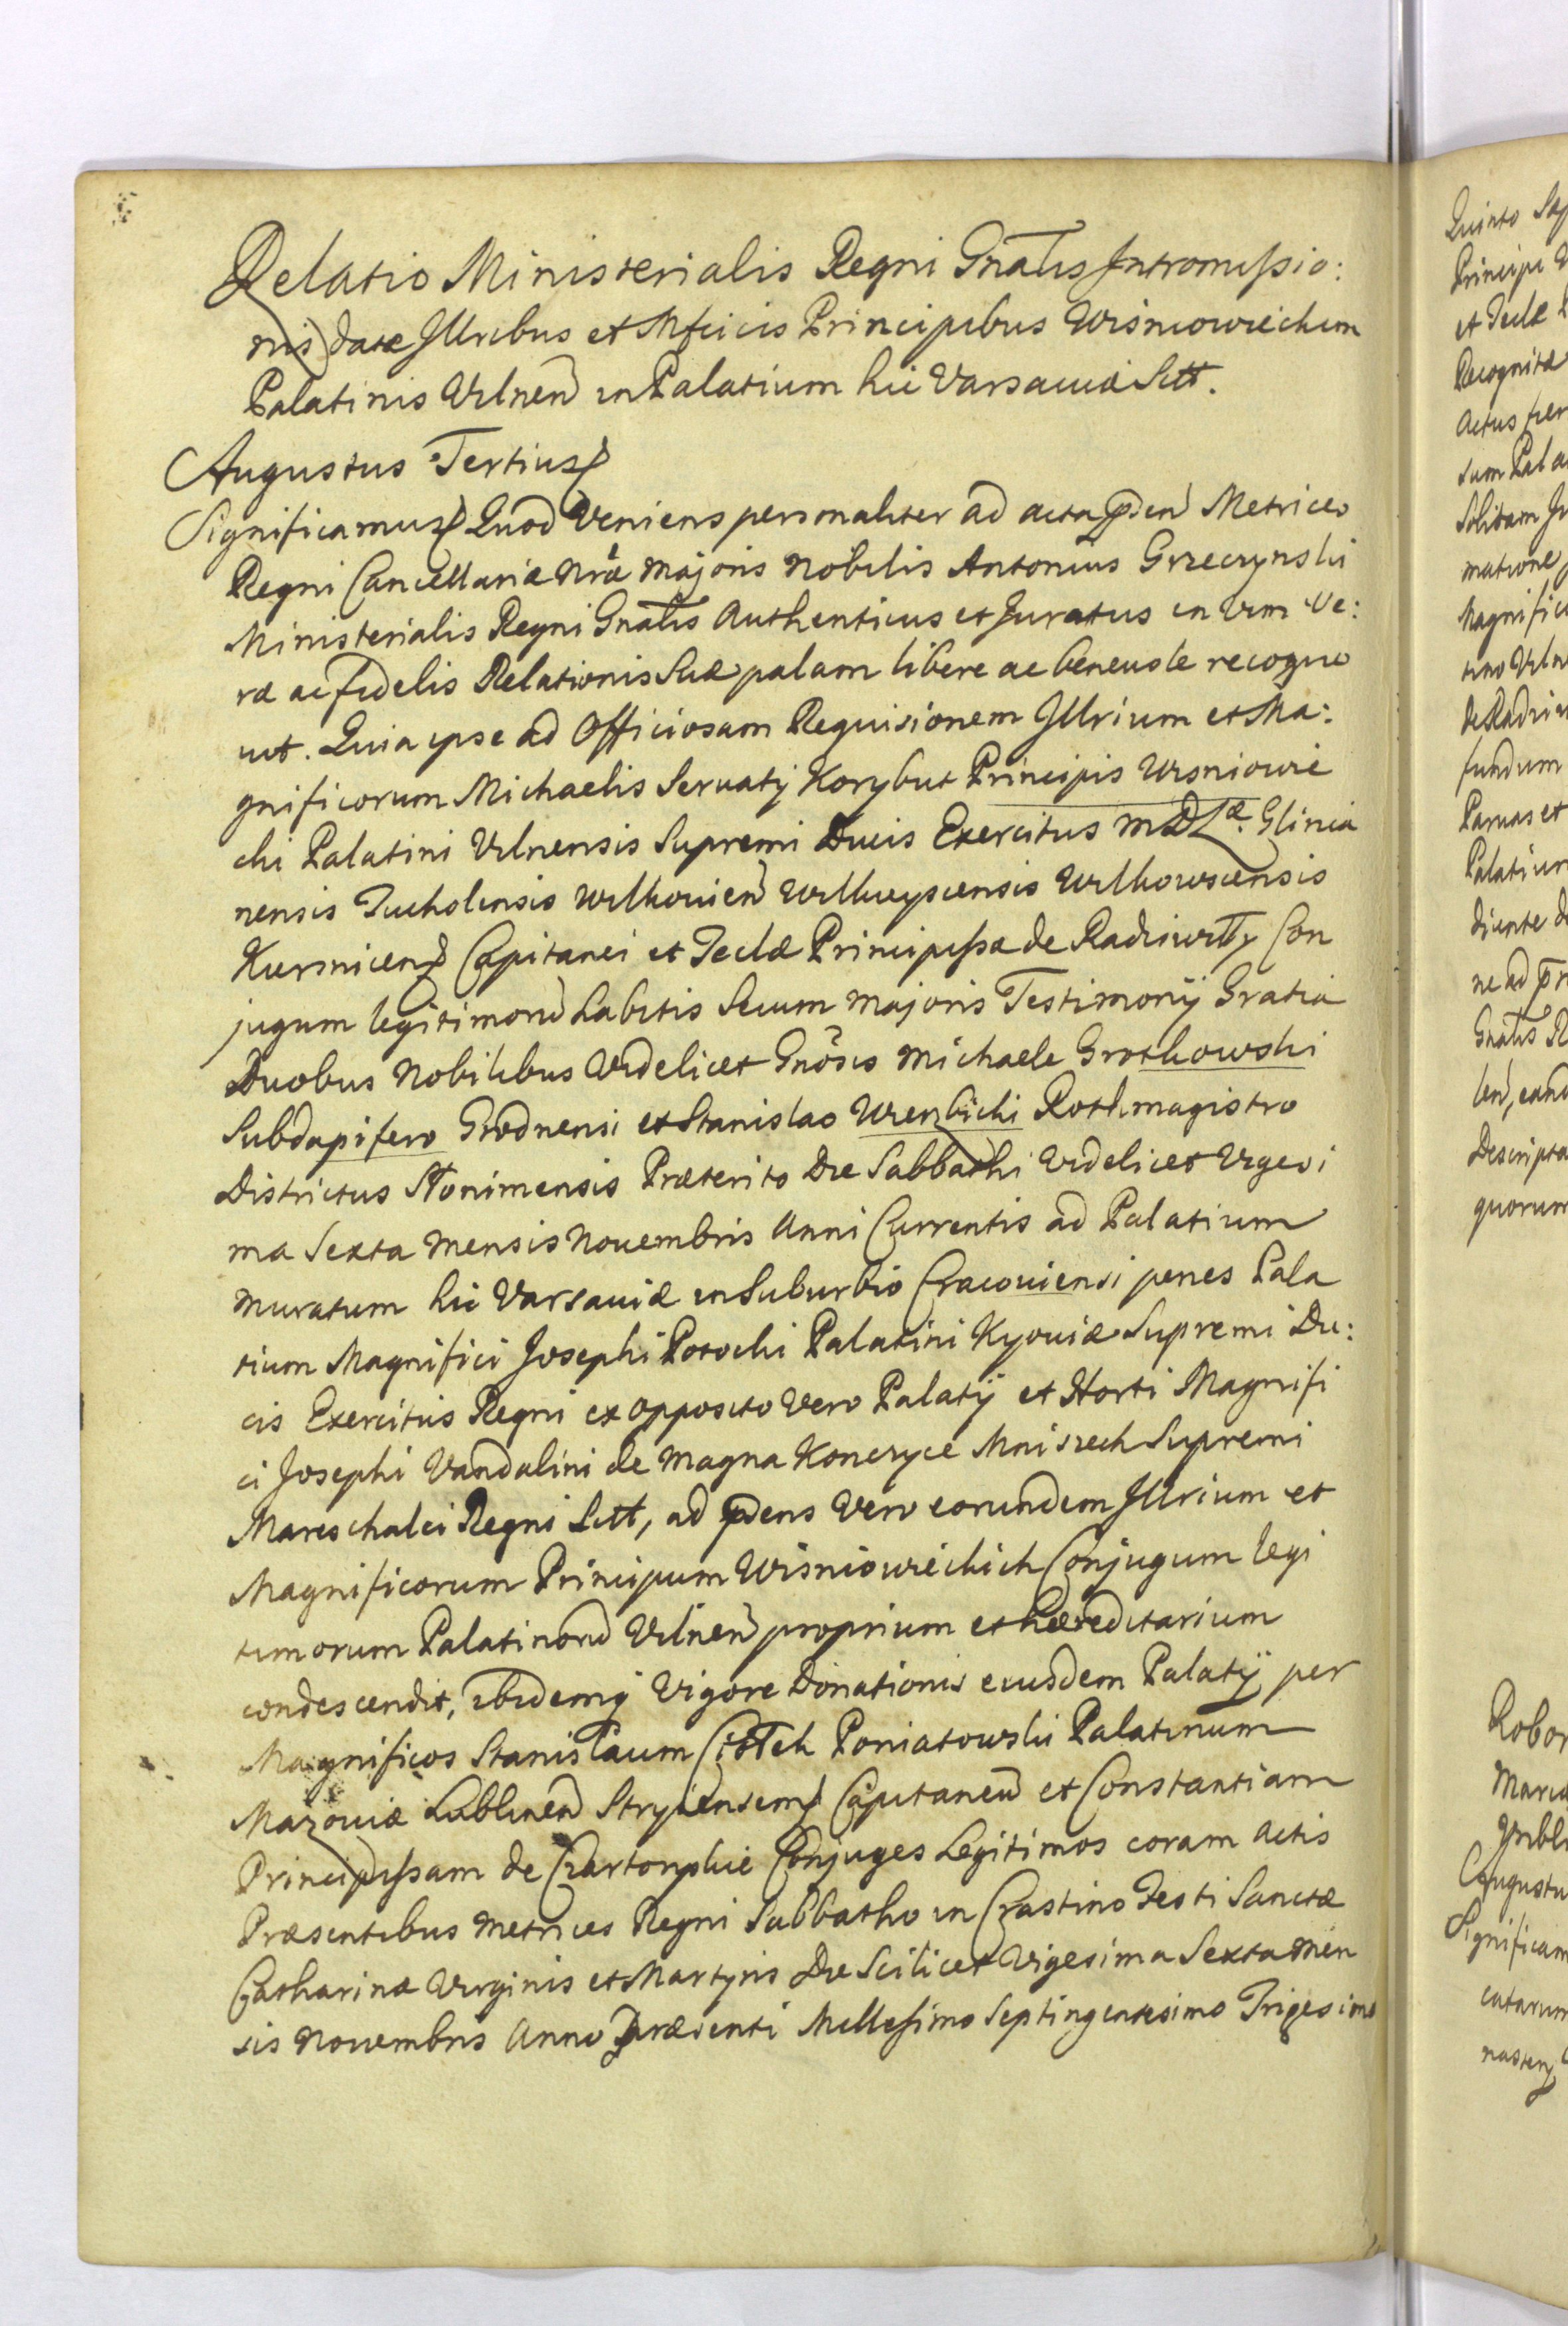 Relatio Ministerialis Regni Gnałis Intromissio:
nis datæ Illribus et Mficis Principibus Wisniowieckim
Palatinis Vilnen in Palatium hic Varsaviæ Sitt.
Augustus Tertius
Significamus Quod Veniens personaliter ad acta pden Metrices
Regni Cancellariæ Nræ Majoris Nobilis Antonius Grzeczynski
Ministerialis Regni Gnałis Authenticus et Juratus in Vim Ve:
ræ ac fidelis Relationis Suæ palam libere ac benevole recogno
vit. Quia ipse ad Officiosam Requisionem Illrium et Ma:
gnificorum Michaelis Servatij Korybut Principis Wisniowie
cki Palatini Vilnensis Supremi Ducis Exercitus MDLæ. Glinia
nensis Tucholensis Wilkovien Wilkieyscensis Wilkowscensis
Capitanei et Teclæ Principissæ de Radziwiłły Con
jugum legitimoru habitis Secum Majoris Testimonij Gratia
Duobus Nobilibus Videlicet Gnosis Michaele Grothowski
Subdapifero Grodnensi et Stanislao Wierzbicki Rothmagistro
Districtus Słonimensis Præterito Die Sabbathi Videlicet Vigesi
ma Sexta Mensis Novembris Anni Currentis ad Palatium
Muratum hic Varsaviæ in Suburbio Cracoviensi penes Pala
tium Magnifici Josephi Potocki Palatini Kyoviæ Supremi Du:
cis Exercitus Regni ex opposito Vero Palatij et Horti Magnifi
ci Josephi Vandalini de Magna Konczyce Mniszech Supremi
Mareschalci Regni Sitt, ad pdens Vero eorundem Illrium et
Magnificorum Principum Wisniowieckich Conjugum legi
timorum Palatinoru Vilnen proprium et hæreditarium
condescendit, ibidemq Vigore Donationis eiusdem Palatij per
Magnificos Stanisłaum Ciołek Poniatowski Palatinum
Mazoviæ Lublinen Stryiensem Capitaneu et Constantiam
Principissam de Czartoryskie Conjuges Legitimos coram Actis
Præsentibus Metrices Regni Sabbatho in Crastino Festi Sanctæ
Catharinæ Virginis et Martyris Die Scilicet Vigesima Sexta Men
sis Novembris Anno Præsenti Millesimo Septingentesimo Trigesimo
Quinto
Principi
et Teclæ
Recognitæ
Actus
Solitam
matione
Magnific
fundum
Parvas et
Palatium
Gnałis
Descripta
quorum
Significam